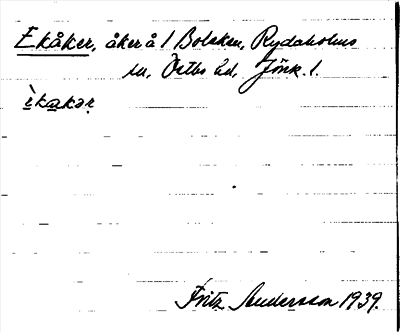 Ekåker, åker å 1 Bolskan, Rydaholms
sn, Östbo hd, Jönk. l.
èkakər
Fritz Andersson 1939.